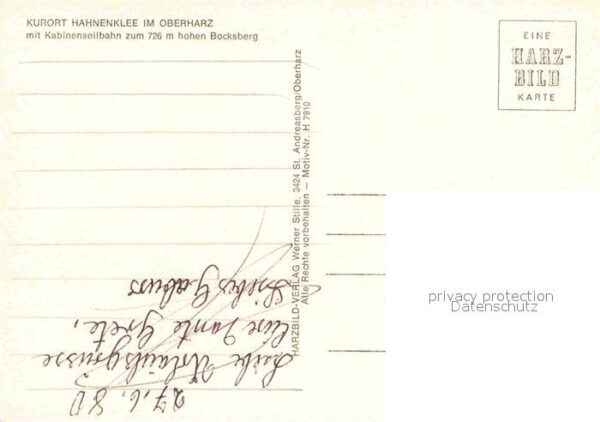 KURORT HAHNENKLEE IM OBERHARZ
mit Kabinenseilbahn zum 726 m hohen Bocksberg
EINE
HARZ-
BILD
KARTE
HARZBILD-VERLAG Werner Stille, 3424 St. Andreasberg/Oberharz
Alle Rechte vorbehalten — Motiv-Nr. H 7910
27.6.80
Liebe Urlaubsgrüsse
Tante Grete,
privacy protection
Datenschutz